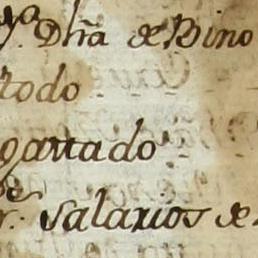 y.º Dhã de Bino
todo
gattado
r. Salarios de